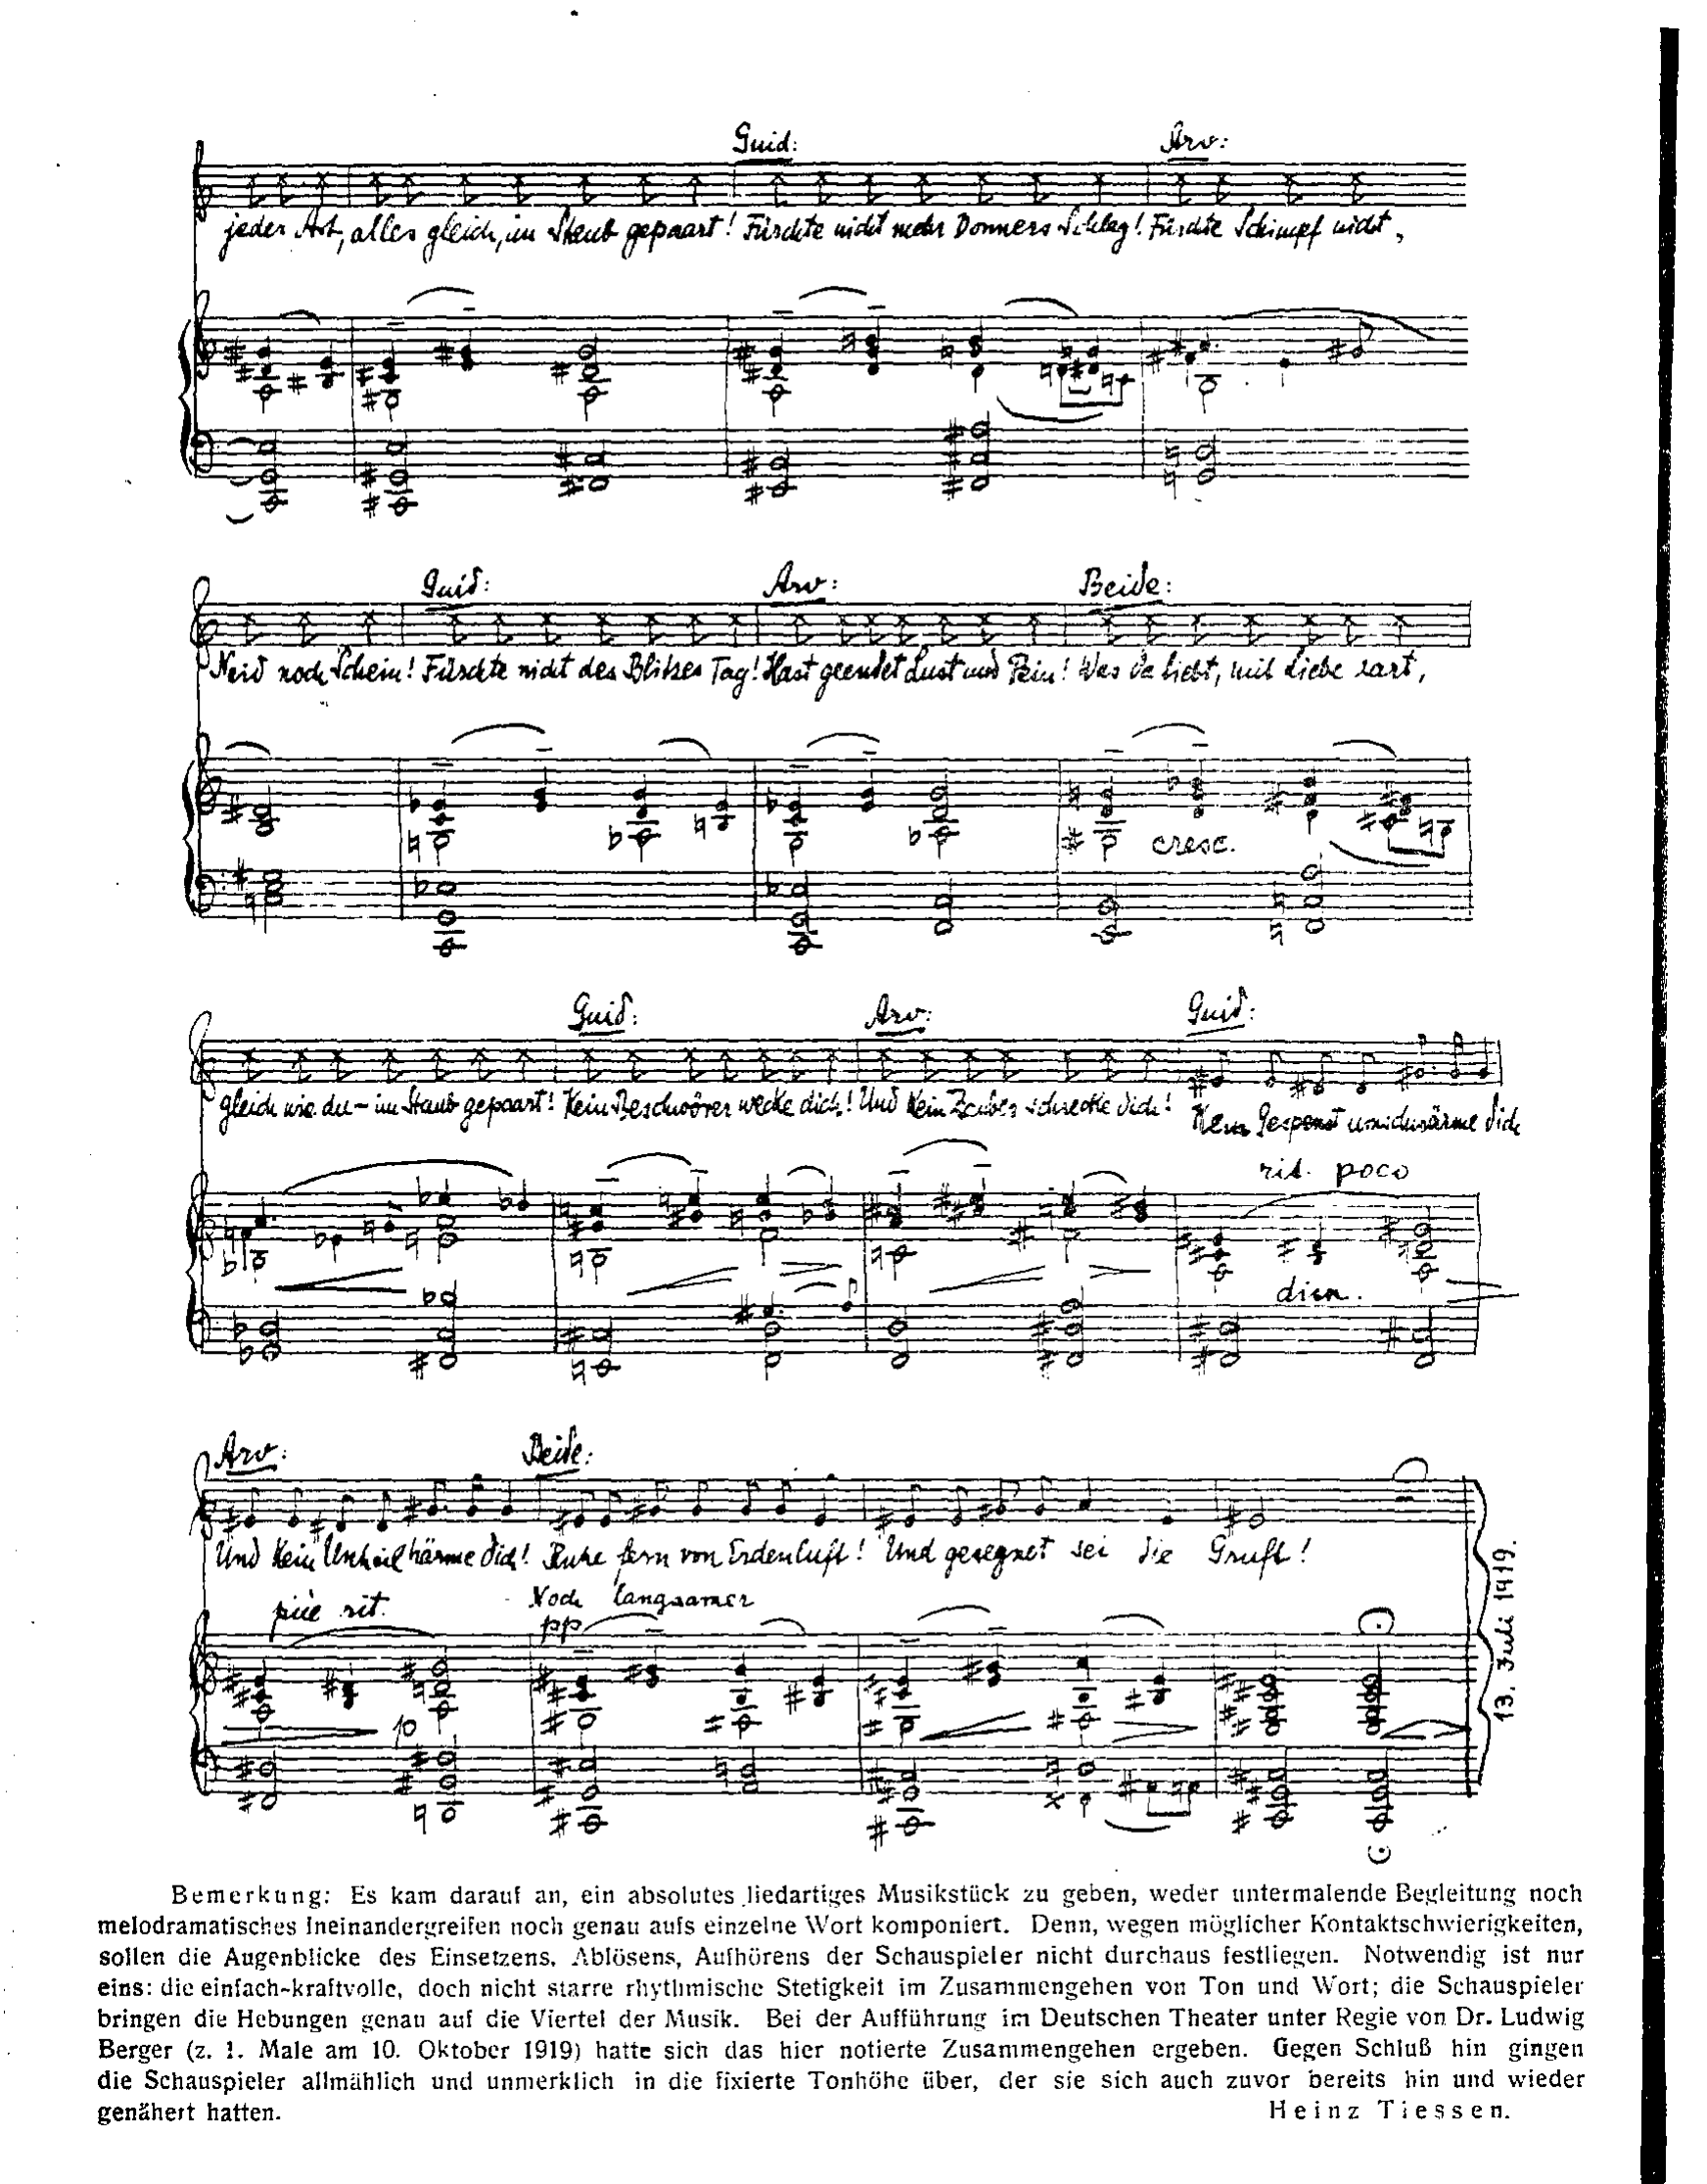 Guid: Arv:
jeder Art, alles gleich, im Staub gepaart! Fürchte nicht mehr Donners Schlag! Fürchte Schimpf nicht,
Guid: Arv: Beide:
Neid noch Schein! Fürchte nicht des Blitzes Tag! Hast geendet Lust und Pein! Was da liebt, mit Liebe zart,
cresc.
Guid: Arv: Guid:
gleich wie du – im Staub gepaart! Kein Beschwörer wecke dich! Und kein Zauber schrecke dich! Kein Gespenst umschwärme dich
rit. poco
dim.
Arv: Beide:
Und kein Unheil härme dich! Ruhe fern von Erdenluft! Und gesegnet sei die Gruft!
più rit. Noch langsamer
pp
13. Juli 1919.
Bemerkung: Es kam darauf an, ein absolutes liedartiges Musikstück zu geben, weder untermalende Begleitung noch
melodramatisches Ineinandergreifen noch genau aufs einzelne Wort komponiert. Denn, wegen möglicher Kontaktschwierigkeiten,
sollen die Augenblicke des Einsetzens, Ablösens, Aufhörens der Schauspieler nicht durchaus festliegen. Notwendig ist nur
eins: die einfach-kraftvolle, doch nicht starre rhythmische Stetigkeit im Zusammengehen von Ton und Wort; die Schauspieler
bringen die Hebungen genau auf die Viertel der Musik. Bei der Aufführung im Deutschen Theater unter Regie von Dr. Ludwig
Berger (z. 1. Male am 10. Oktober 1919) hatte sich das hier notierte Zusammengehen ergeben. Gegen Schluß hin gingen
die Schauspieler allmählich und unmerklich in die fixierte Tonhöhe über, der sie sich auch zuvor bereits hin und wieder
genähert hatten. Heinz Tiessen.